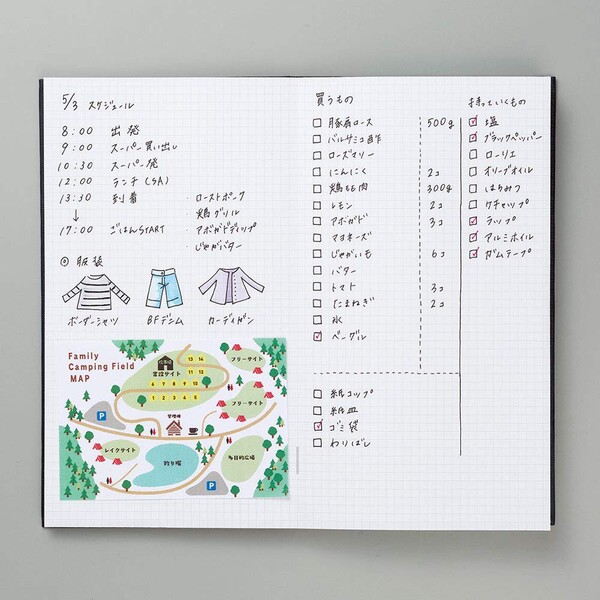 5/3 スケジュール
8:00 出発
9:00 スーパー買い出し
10:30 スーパー発
12:00 ランチ(SA)
13:30 到着
↓
17:00 ごはんSTART
・ローストポーク
・鶏グリル
・アボカドディップ
・じゃがバター
◎ 服装
ボーダーシャツ
BFデニム
カーディガン
Family
Camping Field
MAP
炊事場
常設サイト
13 14
11 12
6 7 8 9 10
1 2 3 4 5
フリーサイト
フリーサイト
P
管理棟
レイクサイト
釣り堀
多目的広場
P
買うもの
豚肩ロース 500g
バルサミコ酢
ローズマリー
にんにく 2コ
鶏もも肉 300g
レモン 2コ
アボガド 3コ
マヨネーズ
じゃがいも 6コ
バター
トマト 3コ
たまねぎ 2コ
氷
ベーグル
紙コップ
紙皿
ゴミ袋
わりばし
持っていくもの
塩
ブラックペッパー
ローリエ
オリーブオイル
はちみつ
ケチャップ
ラップ
アルミホイル
ガムテープ